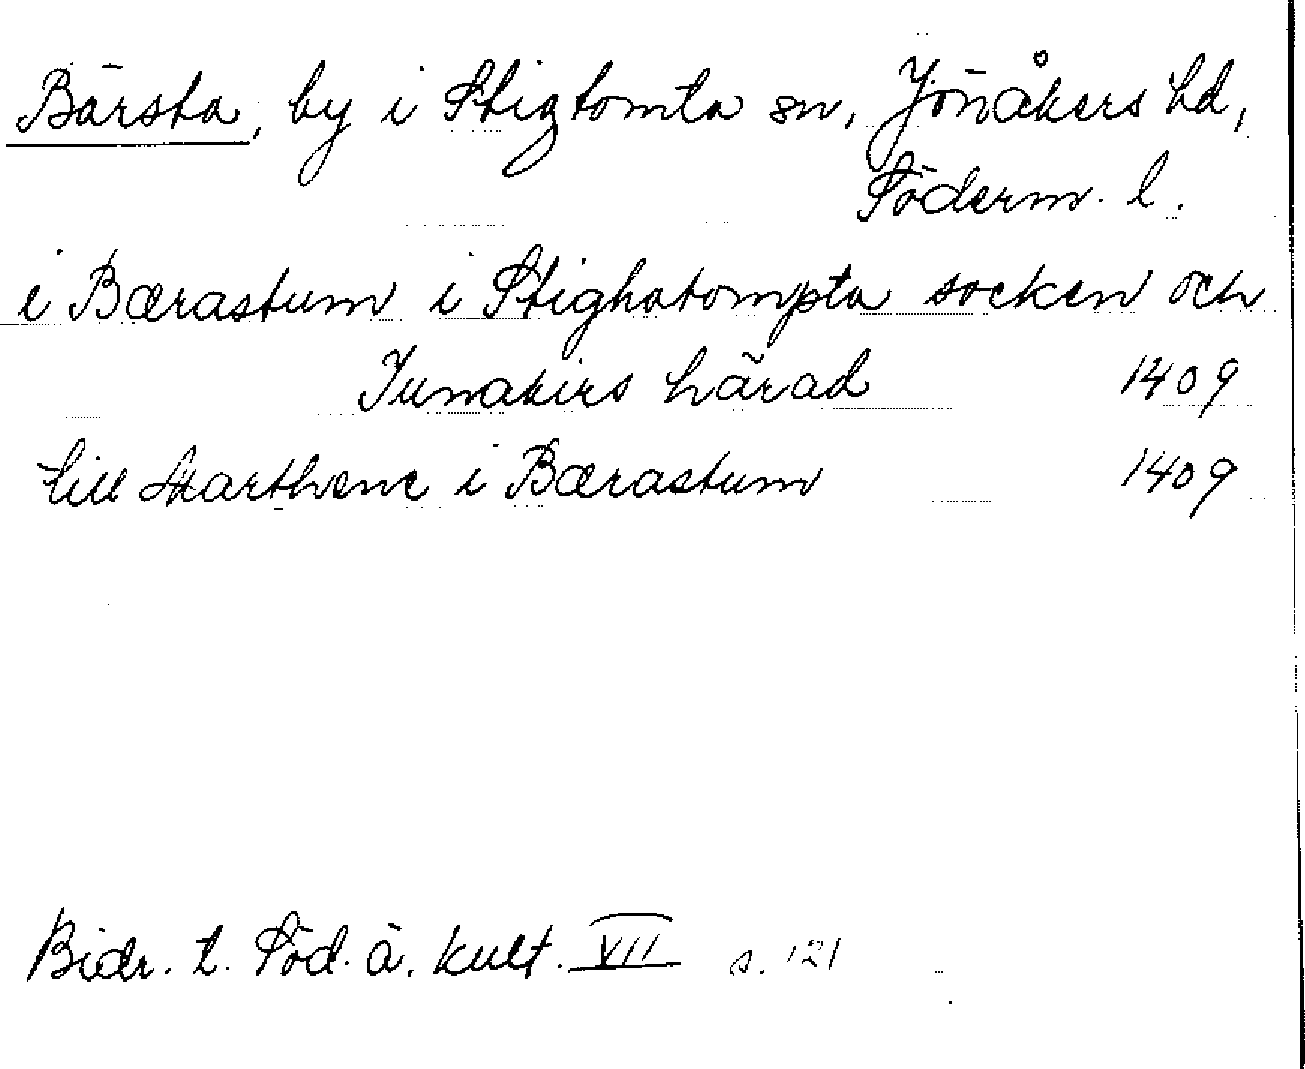 Bärsta, by i Stigtomta sn, Jönåkers hd,
Söderm. l.
i Bærastum i Stighatompta socken och
Junakirs härad 1409
till Marthene i Bærastum 1409
Bidr. t. Söd. ä. kult. VII s. 121